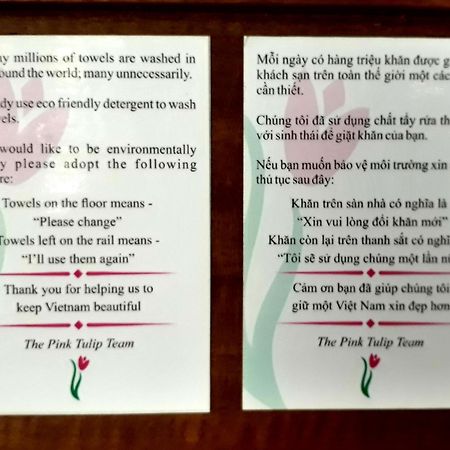 millions of towels are washed in
world; many unnecessarily.
use eco friendly detergent to wash
would like to be environmentally
please adopt the following
Towels on the floor means -
“Please change”
Towels left on the rail means -
“I’ll use them again”
Thank you for helping us to
keep Vietnam beautiful
The Pink Tulip Team
Mỗi ngày có hàng triệu khăn được
khách sạn trên toàn thế giới một
cần thiết.
Chúng tôi đã sử dụng chất tẩy rửa
với sinh thái để giặt khăn của bạn.
Nếu bạn muốn bảo vệ môi trường xin
thủ tục sau đây:
Khăn trên sàn nhà có nghĩa là
“Xin vui lòng đổi khăn mới”
Khăn còn lại trên thanh sắt có
“Tôi sẽ sử dụng chúng một lần
Cám ơn bạn đã giúp chúng tôi
giữ một Việt Nam xin đẹp hơn
The Pink Tulip Team